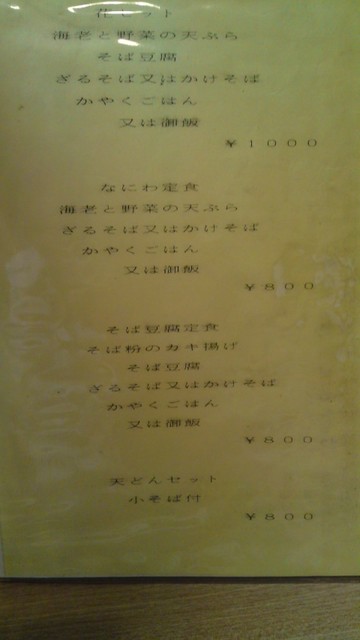 花セット
海老と野菜の天ぷら
そば豆腐
ざるそば又はかけそば
かやくごはん
又は御飯
￥１０００
なにわ定食
海老と野菜の天ぷら
ざるそば又はかけそば
かやくごはん
又は御飯
￥８００
そば豆腐定食
そば粉のカキ揚げ
そば豆腐
ざるそば又はかけそば
かやくごはん
又は御飯
￥８００
天どんセット
小そば付
￥８００